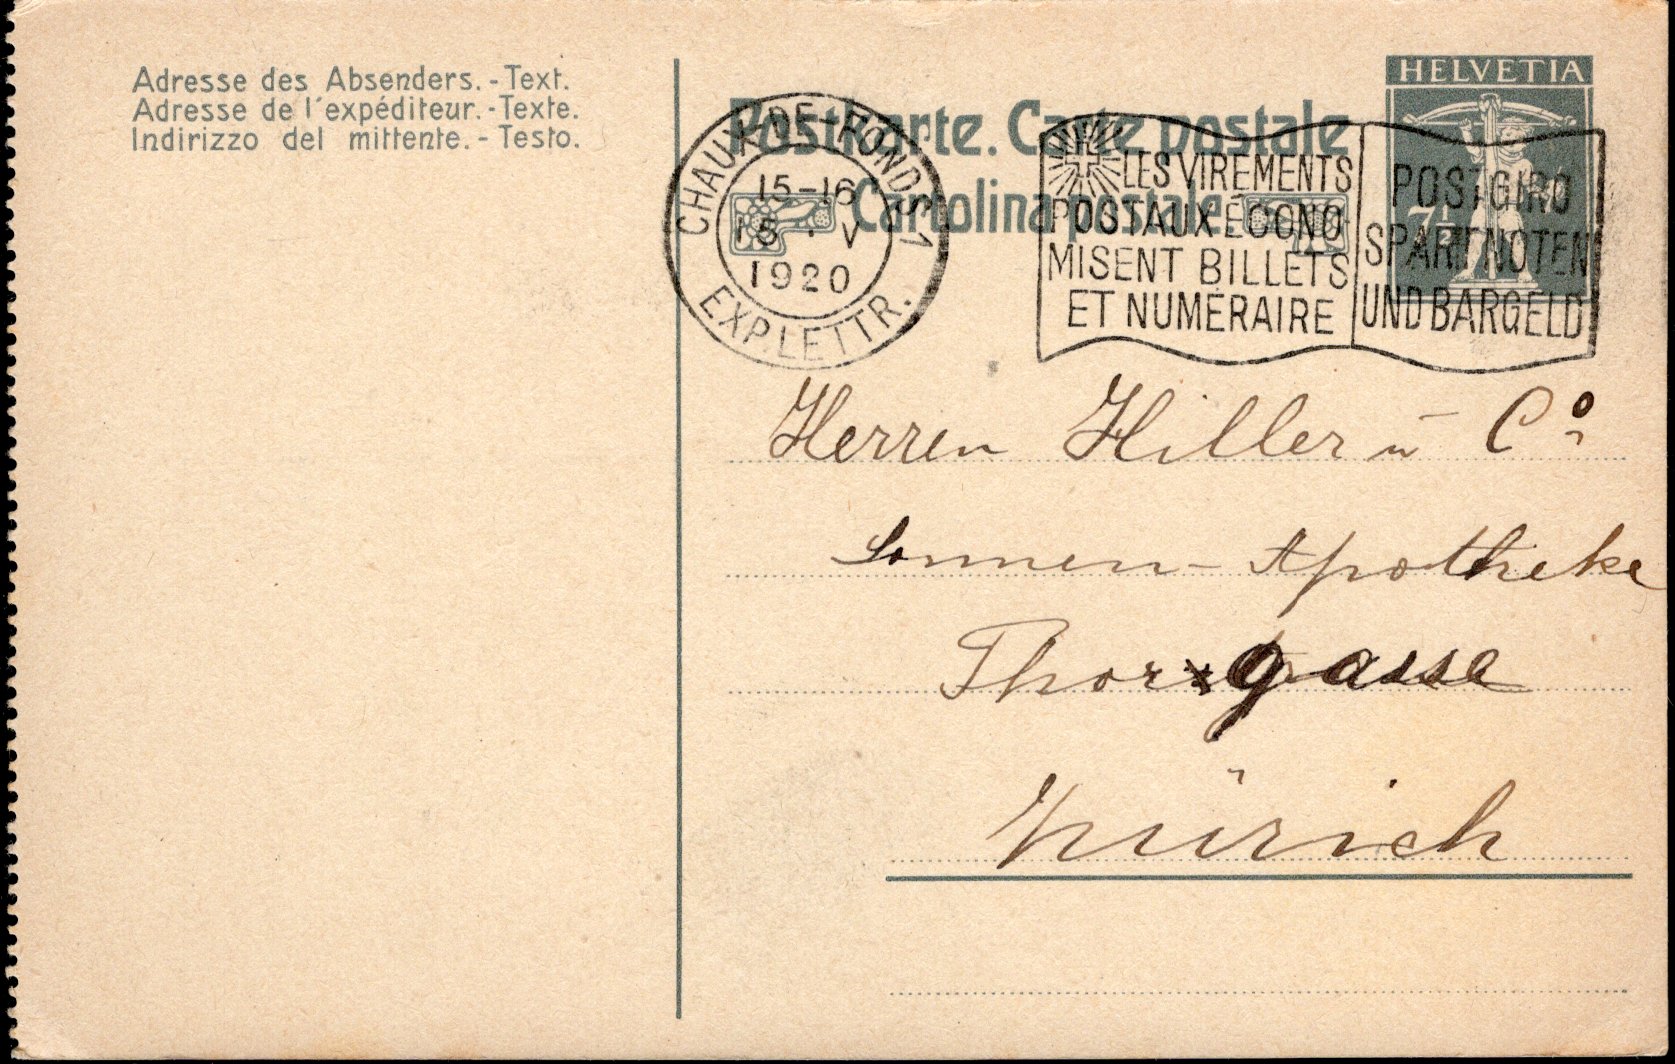 Adresse des Absenders. - Text.
Adresse de l'expéditeur. - Texte.
Indirizzo del mittente. - Testo.
Postkarte. Carte postale
Cartolina postale.
CHAUX-DE-FONDS 1
15-16
15 · V
1920
EXP. LETTR.
LES VIREMENTS
POSTAUX ÉCONO
MISENT BILLETS
ET NUMÉRAIRE
POSTGIRO
SPART NOTEN
UND BARGELD
HELVETIA
7½
Herren Hiller u Co
Sonnen-Apotheke
Thorgasse
Zürich